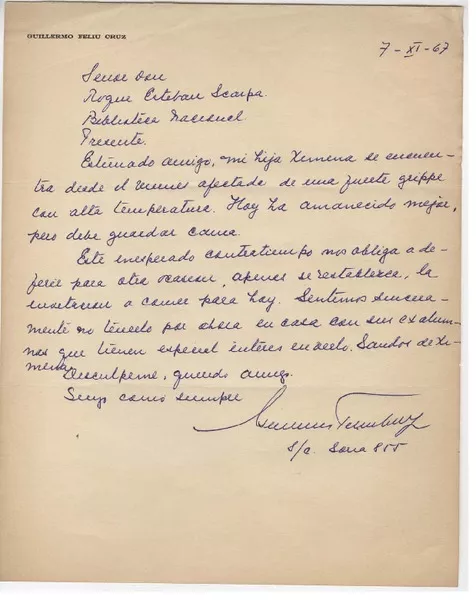 GUILLERMO FELIU CRUZ
7-XI-67
Señor don
Roque Esteban Scarpa.
Biblioteca Nacional.
Presente.
Estimado amigo, mi hija Ximena se encuen-
tra desde el viernes afectada de una fuerte grippe
con alta temperatura. Hoy ha amanecido mejor,
pero debe guardar cama.
Este inesperado contratiempo nos obliga a de-
ferir para otra ocasion, apenas se restablezca, la
invitacion a comer para hoy. Sentimos sincera-
mente no tenerlo por ahora en casa con sus exalum-
nas que tienen especial interes en verlo. Saludos de Xi-
mena.
Disculpeme, querido amigo.
Suyo como siempre
s/c.